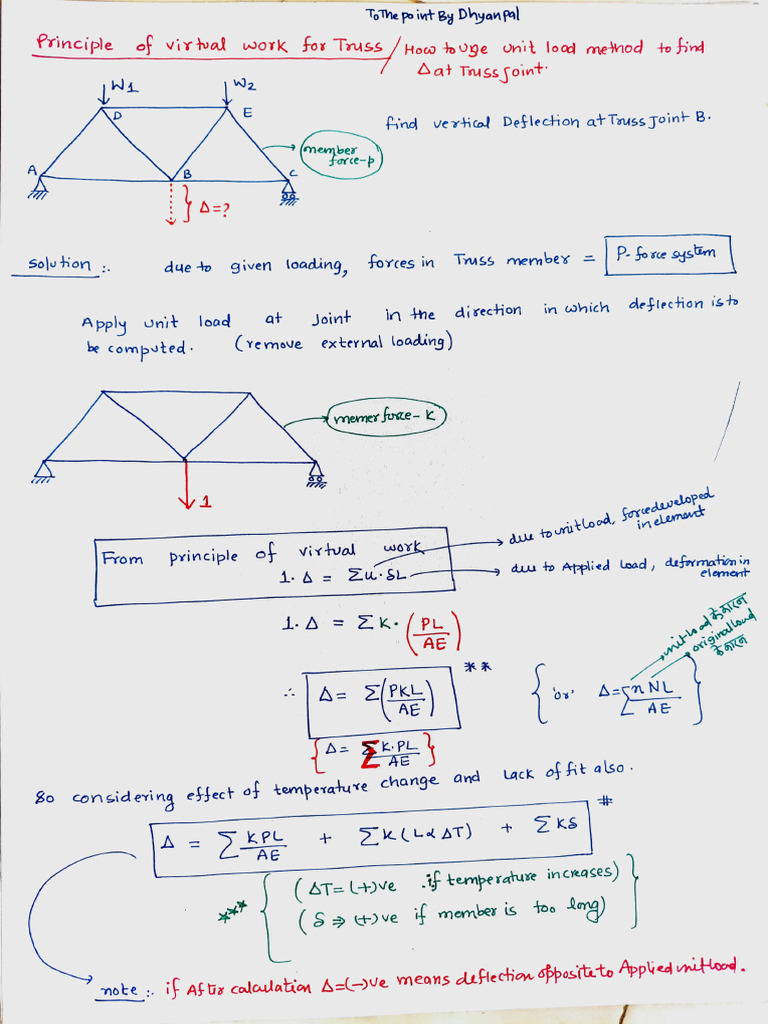 To The point By Dhyanpal
Principle of virtual work for Truss / How to use unit load method to find
Δ at Truss Joint.
W1
W2
D
E
find vertical Deflection at Truss Joint B.
member
force-p
A
B
C
Δ=?
solution :. due to given loading, forces in Truss member = P-force system
Apply unit load at Joint in the direction in which deflection is to
be computed. (remove external loading)
memer force - K
1
From principle of virtual work
1. Δ = Σu.δL
due to unit load, force developed
in element
due to Applied Load, deformation in
element
1. Δ = ΣK. (PL/AE)
∴ Δ = Σ(PKL/AE) **
{ 'or' Δ = Σ nNL/AE }
unit load के कारण
original load
के कारण
{ Δ = Σ K.PL/AE }
so considering effect of temperature change and Lack of fit also.
Δ = Σ KPL/AE + ΣK(LαΔT) + ΣKδ #
(ΔT = (+)ve .if temperature increases)
*** (δ ⇒ (+)ve if member is too long)
note :. if After calculation Δ=(-)ve means deflection opposite to Applied unit load.